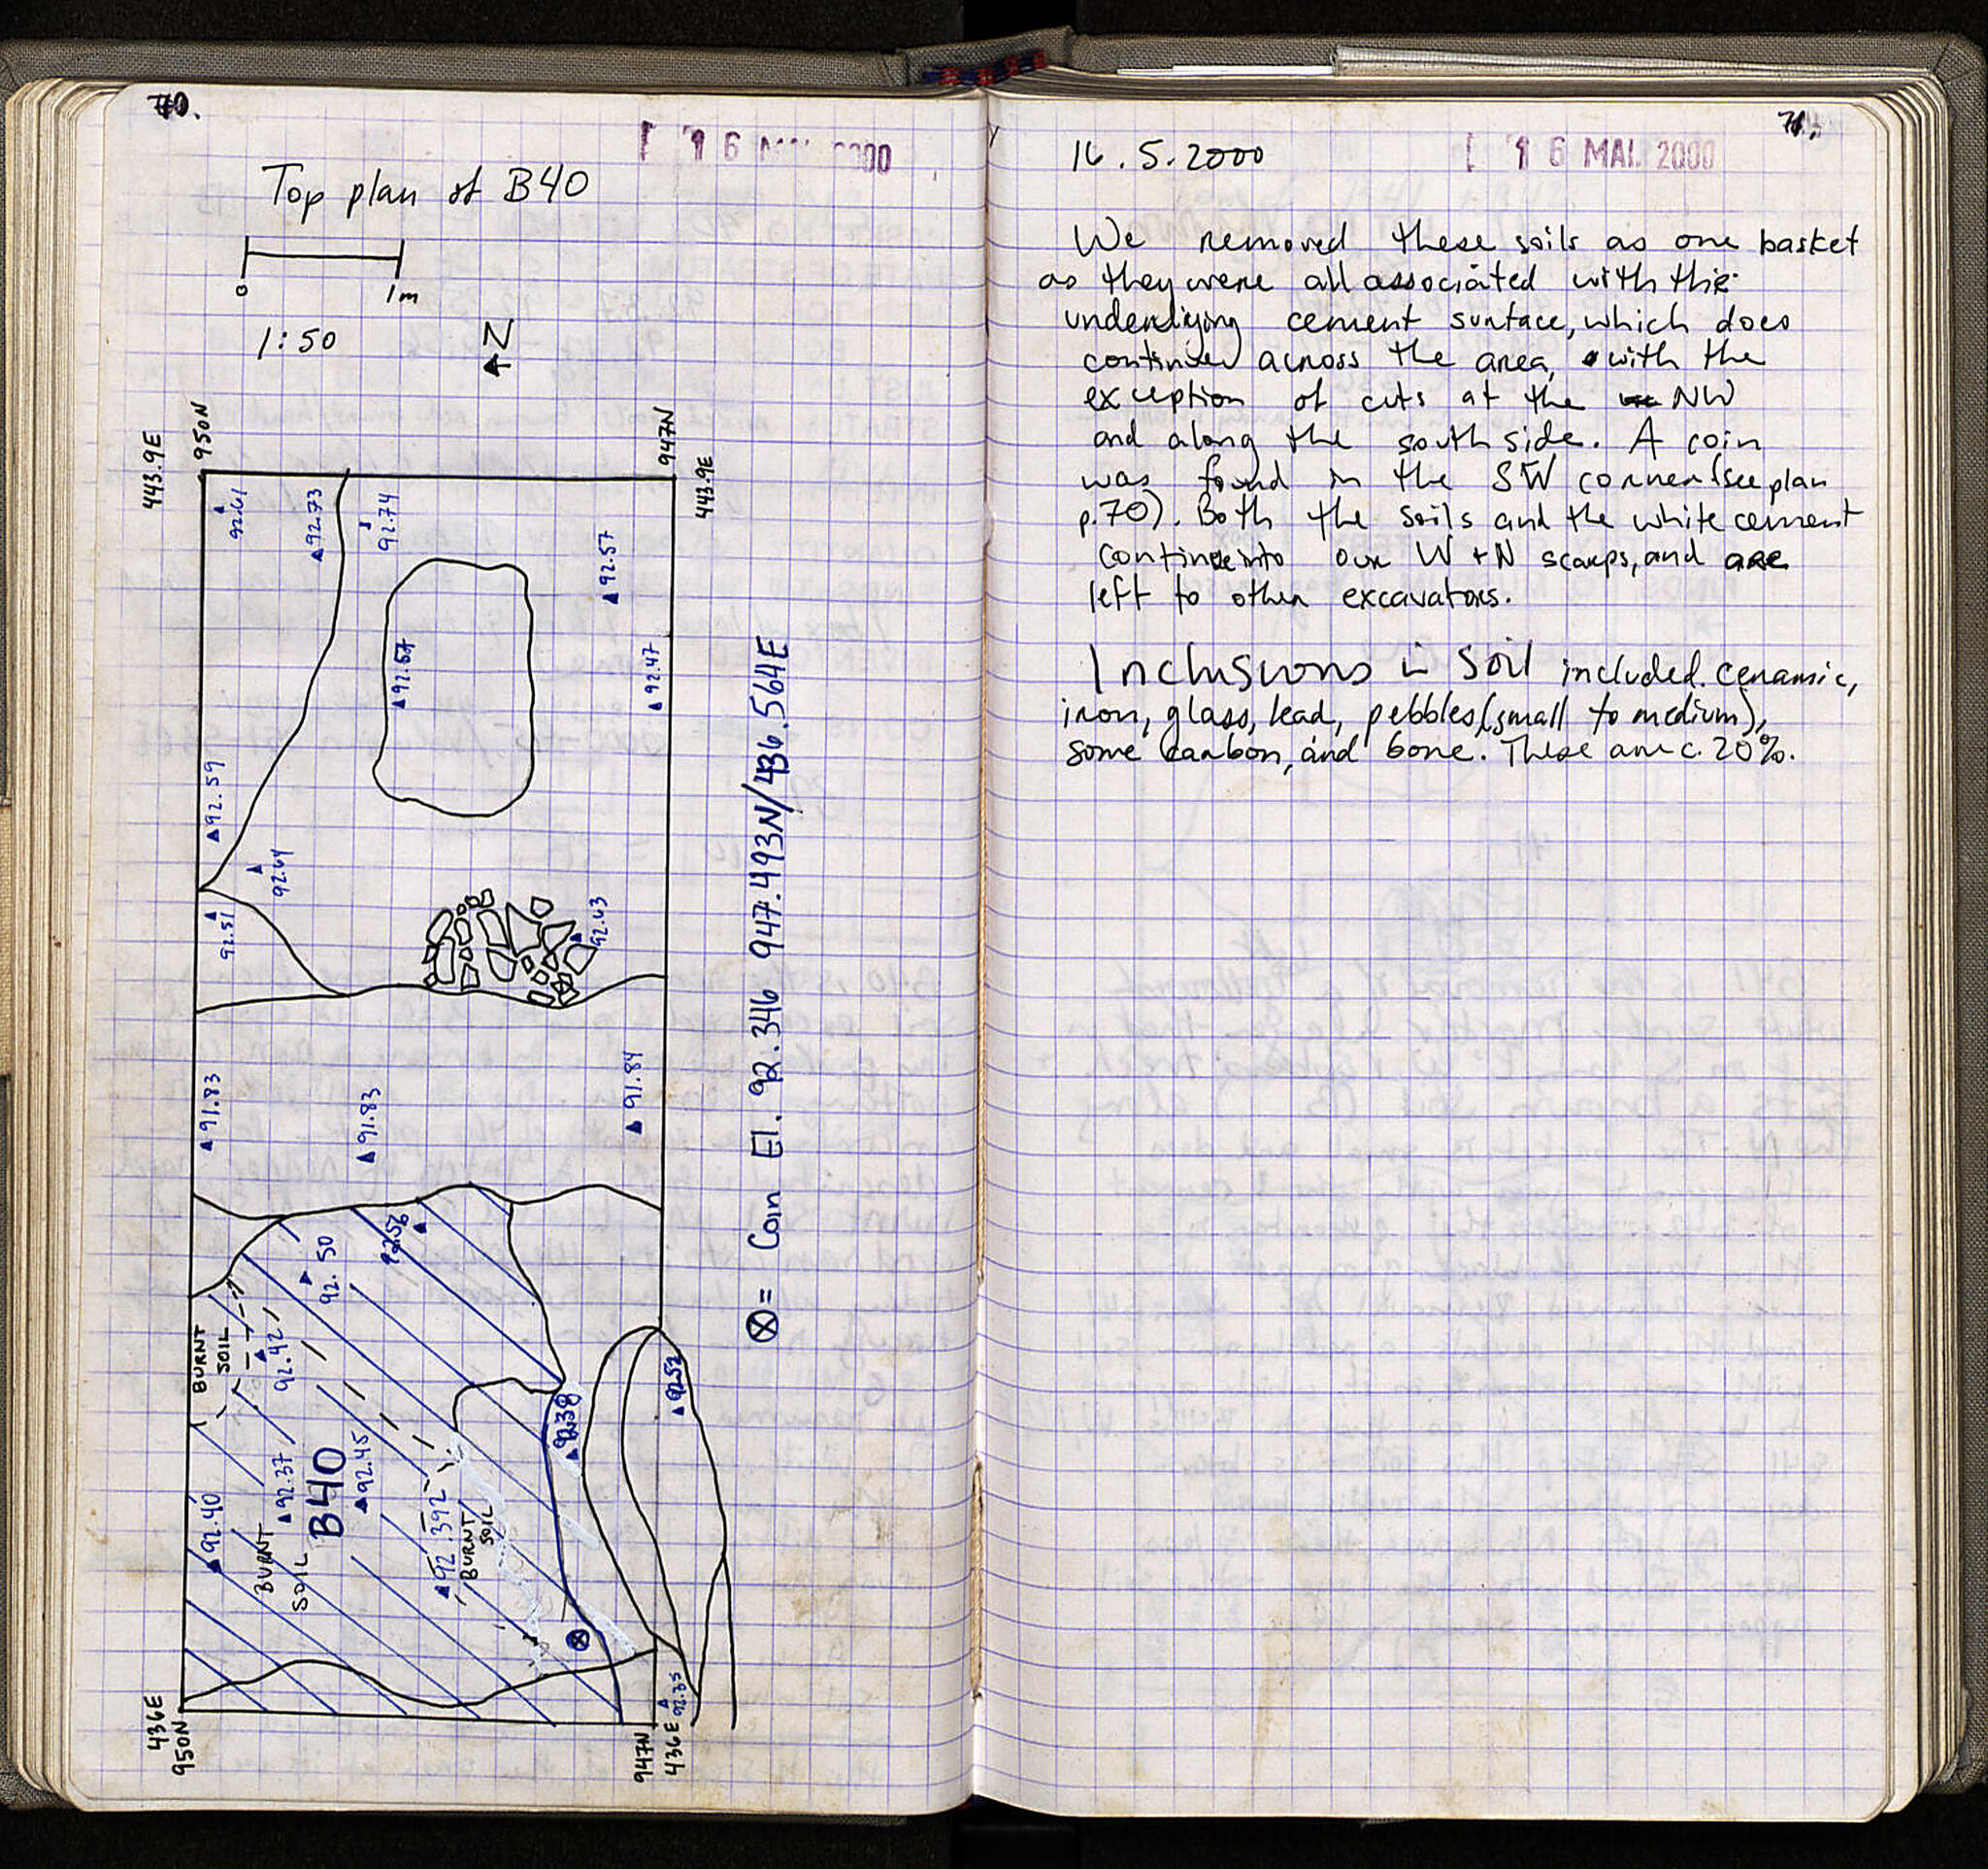 70.
16 MAI 2000
Top plan of B40
0 1m
1:50
N
443.9E
950N
947N
443.9E
92.61
92.73
92.74
92.57
92.57
92.47
92.59
92.64
92.51
92.63
91.83
91.83
91.84
92.56
92.50
BURNT
SOIL
92.42
92.52
92.38
92.45
92.37
B40
92.40
BURNT
SOIL
92.392
BURNT
SOIL
92.35
436E
950N
947N
436E
⊗ = Coin El. 92.346 947.493N/436.564E
71.
16.5.2000
16 MAI 2000
We removed these soils as one basket
as they were all associated with this
underlying cement surface, which does
continue across the area, with the
exception of cuts at the NW
and along the south side. A coin
was found in the SW corner (see plan
p.70). Both the soils and the white cement
continue into our W + N scarps, and are
left to other excavators.
Inclusions in soil included ceramic,
iron, glass, lead, pebbles (small to medium),
some carbon, and bone. These are c. 20%.